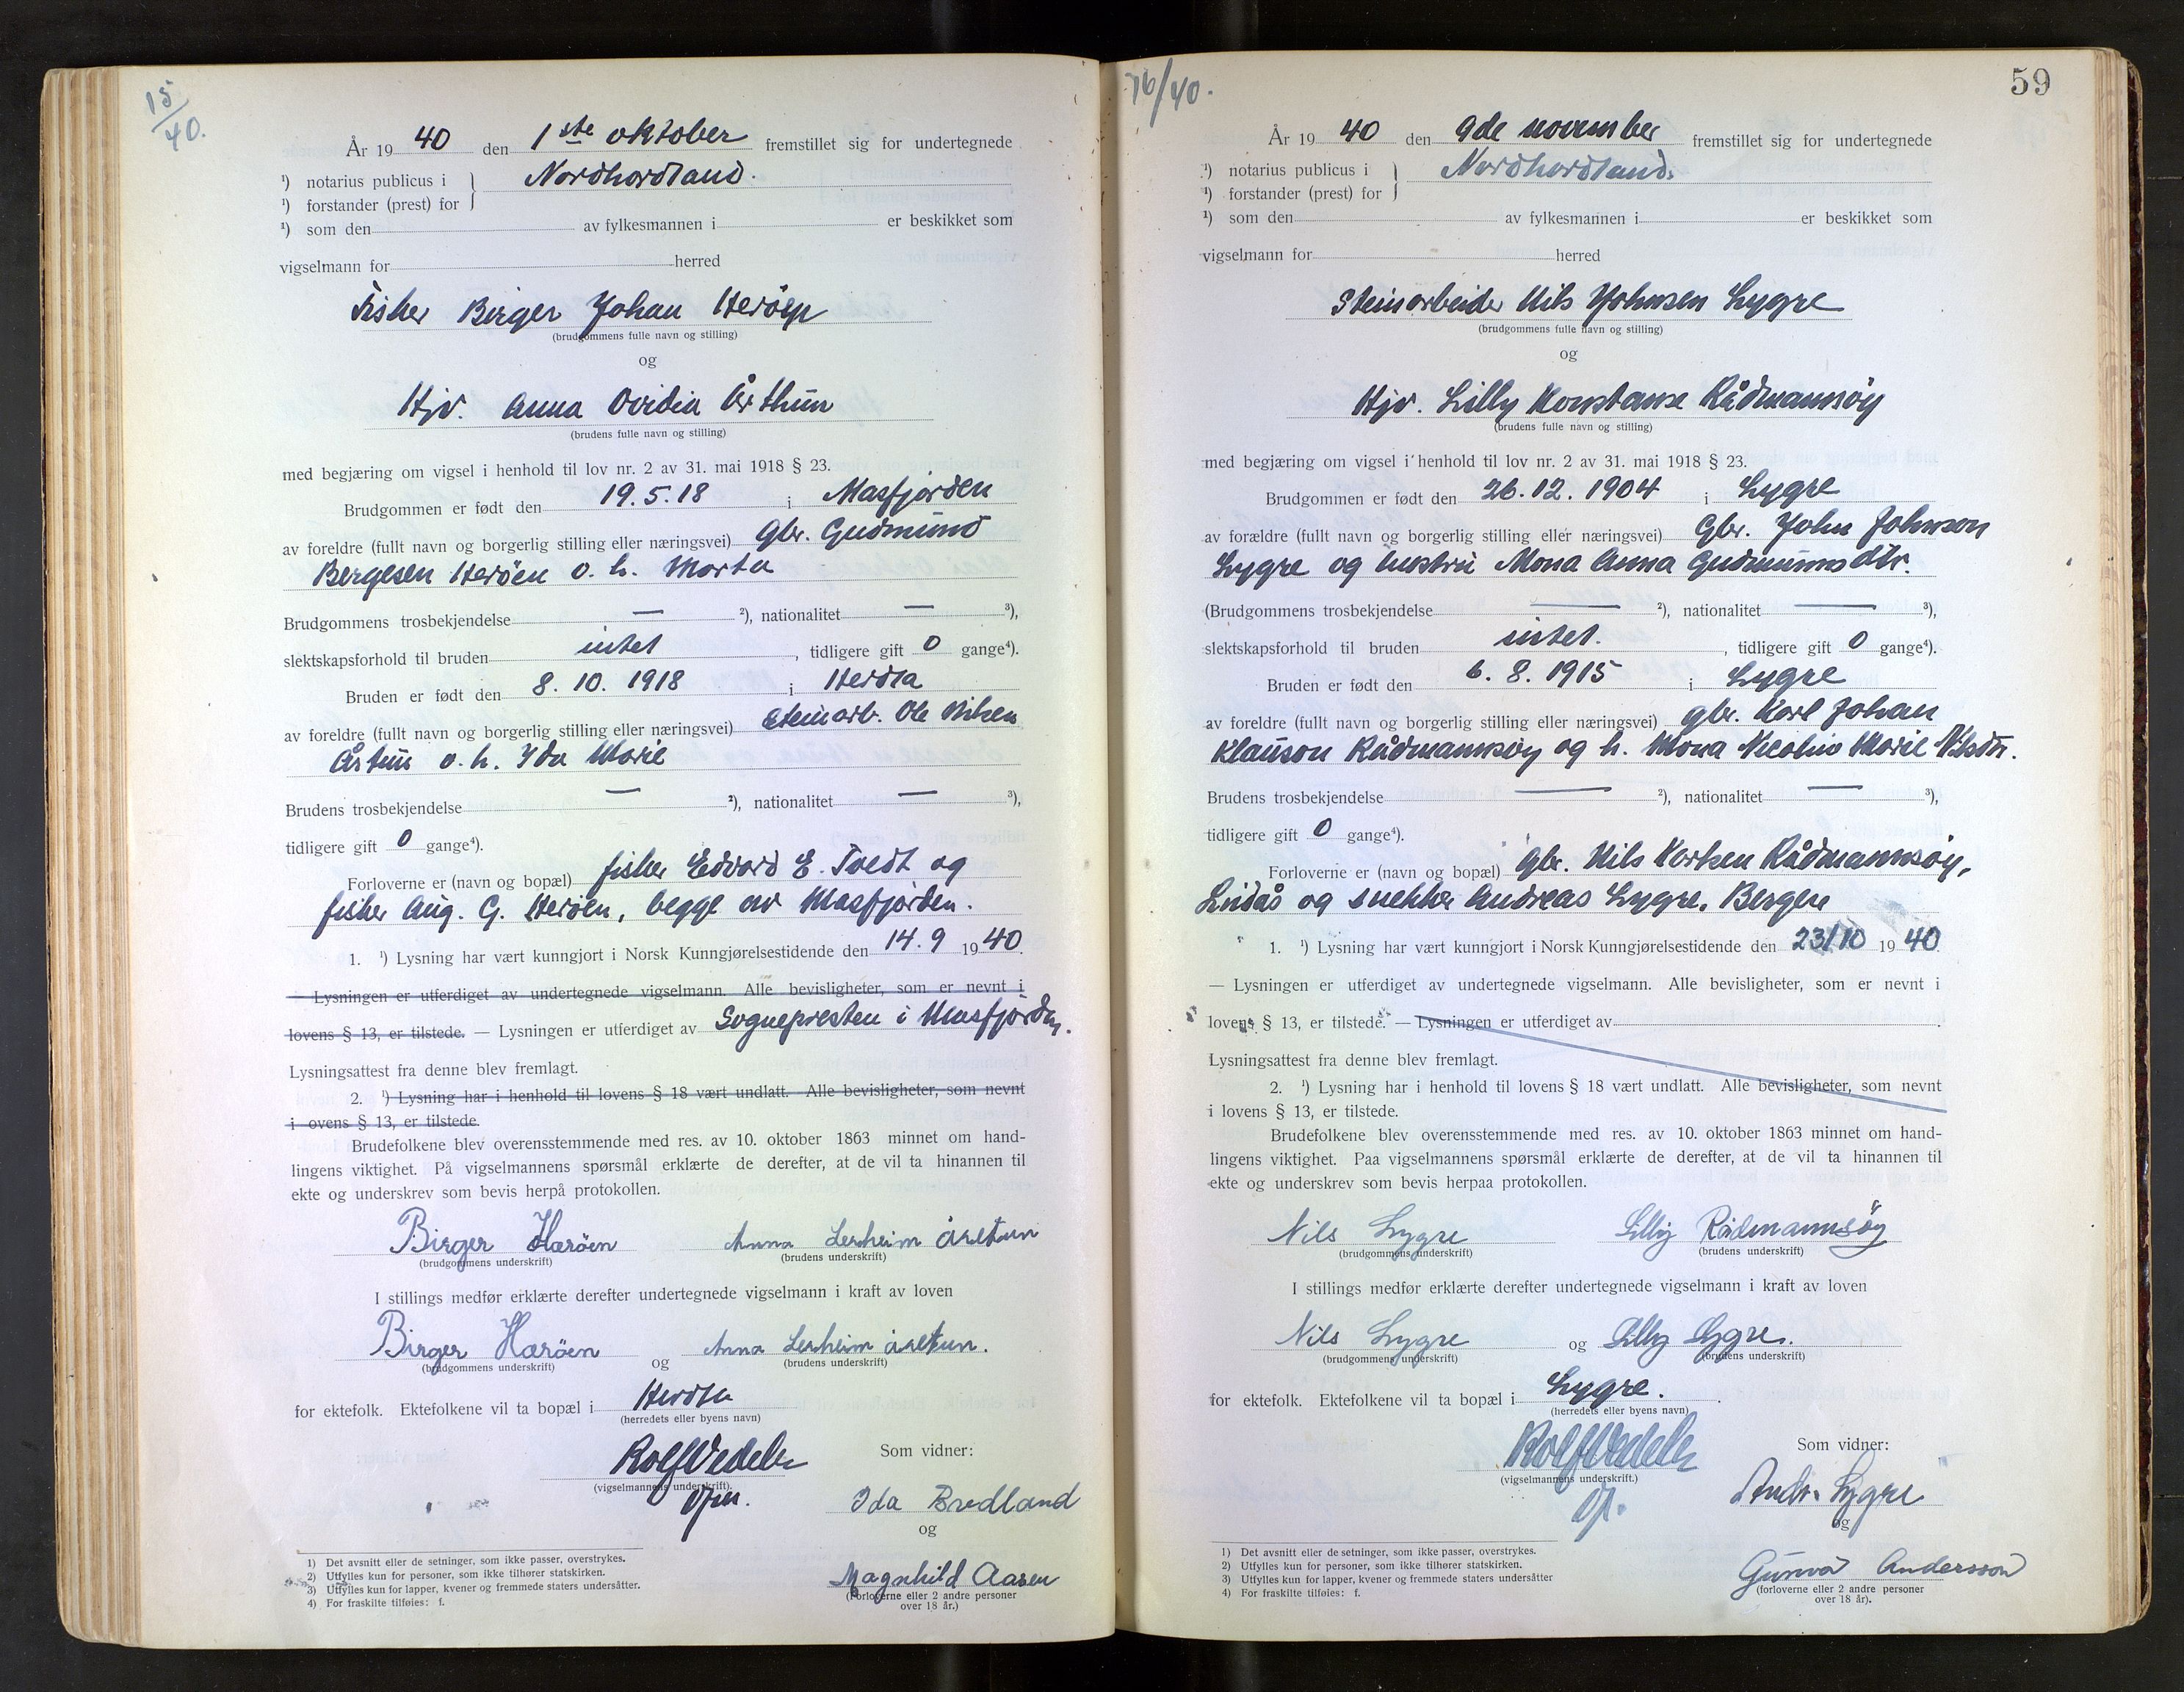 15/40.
År 19 40 den 1ste oktober fremstillet sig for undertegnede
¹) notarius publicus i } Nordhordland.
¹) forstander (prest) for
¹) som den av fylkesmannen i er beskikket som
vigselmann for herred
Fisker Birger Johan Heröen
(brudgommens fulle navn og stilling)
og
Hjv. Anna Ovidia Årthun
(brudens fulle navn og stilling)
med begjæring om vigsel i henhold til lov nr. 2 av 31. mai 1918 § 23.
Brudgommen er født den 19.5.18 i Masfjorden
av foreldre (fullt navn og borgerlig stilling eller næringsvei) Gbr. Gudmund
Bergesen Herøen o. h. Marta
Brudgommens trosbekjendelse — ²), nationalitet — ³),
slektskapsforhold til bruden intet, tidligere gift 0 gange⁴).
Bruden er født den 8. 10. 1918 i Herdla
av foreldre (fullt navn og borgerlig stilling eller næringsvei) Steinarb. Ole Nilsen
Årtun o. h. Ida Marie
Brudens trosbekjendelse — ²), nationalitet — ³),
tidligere gift 0 gange⁴).
Forloverne er (navn og bopæl) fisker Edvard E. Tvedt og
fisker Aug. G. Herøen, begge av Masfjorden.
1. ¹) Lysning har vært kunngjort i Norsk Kunngjørelsestidende den 14.9 19 40.
— Lysningen er utferdiget av undertegnede vigselmann. Alle bevisligheter, som er nevnt i
lovens § 13, er tilstede. — Lysningen er utferdiget av Sognepresten i Masfjorden.
Lysningsattest fra denne blev fremlagt.
2. ¹) Lysning har i henhold til lovens § 18 vært undlatt. Alle bevisligheter, som nevnt
i ovens § 13, er tilstede.
Brudefolkene blev overensstemmende med res. av 10. oktober 1863 minnet om hand-
lingens viktighet. På vigselmannens spørsmål erklærte de derefter, at de vil ta hinannen til
ekte og underskrev som bevis herpå protokollen.
Birger Harøen Anna Lerheim Årethun
(brudgommens underskrift) (brudens underskrift)
I stillings medfør erklærte derefter undertegnede vigselmann i kraft av loven
Birger Harøen og Anna Lerheim Årethun.
(brudgommens underskrift) (brudens underskrift)
for ektefolk. Ektefolkene vil ta bopæl i Herdla
(herredets eller byens navn)
Rolf Vedeler Som vidner:
(vigselmannens underskrift).
Ida Bredland
og
Magnhild Aasen
(Forloverne eller 2 andre personer
over 18 år.)
1) Det avsnitt eller de setninger, som ikke passer, overstrykes.
2) Utfylles kun for personer, som ikke tilhører statskirken.
3) Utfylles kun for lapper, kvener og fremmede staters undersåtter.
4) For fraskilte tilføies: f.
16/40.
59
År 19 40 den 9de november fremstillet sig for undertegnede
¹) notarius publicus i } Nordhordland.
¹) forstander (prest) for
¹) som den av fylkesmannen i er beskikket som
vigselmann for herred
Steinarbeider Nils Johnsen Lygre
(brudgommens fulle navn og stilling)
og
Hjv. Lilly Konstanse Rådmannsøy
(brudens fulle navn og stilling)
med begjæring om vigsel i henhold til lov nr. 2 av 31. mai 1918 § 23.
Brudgommen er født den 26.12.1904 i Lygre
av forældre (fullt navn og borgerlig stilling eller næringsvei) Gbr. John Johnson
Lygre og hustru Mona Anna Gudmunnsdtr.
(Brudgommens trosbekjendelse — ²), nationalitet — ³),
slektskapsforhold til bruden intet., tidligere gift 0 gange⁴).
Bruden er født den 6. 8. 1915 i Lygre
av foreldre (fullt navn og borgerlig stilling eller næringsvei) gbr. Karl Johan
Klauson Rådmannsøy og h. Mona Nicolin Marie Nilsdtr.
Brudens trosbekjendelse — ²), nationalitet — ³),
tidligere gift 0 gange⁴).
Forloverne er (navn og bopæl) Gbr. Nils Karlsen Rådmannsøy,
Lindås og snekker Andreas Lygre, Bergen
1. ¹) Lysning har vært kunngjort i Norsk Kunngjørelsestidende den 23/10 19 40.
— Lysningen er utferdiget av undertegnede vigselmann. Alle bevisligheter, som er nevnt i
lovens § 13, er tilstede. — Lysningen er utferdiget av .
Lysningsattest fra denne blev fremlagt.
2. ¹) Lysning har i henhold til lovens § 18 vært undlatt. Alle bevisligheter, som nevnt
i lovens § 13, er tilstede.
Brudefolkene blev overensstemmende med res. av 10. oktober 1863 minnet om hand-
lingens viktighet. Paa vigselmannens spørsmål erklærte de derefter, at de vil ta hinannen til
ekte og underskrev som bevis herpaa protokollen.
Nils Lygre Lilly Rådmannsøy
(brudgommens underskrift) (brudens underskrift)
I stillings medfør erklærte derefter undertegnede vigselmann i kraft av loven
Nils Lygre og Lilly Lygre.
(brudgommens underskrift) (brudens underskrift)
for ektefolk. Ektefolkene vil ta bopæl i Lygre.
(herredets eller byens navn)
Rolf Vedeler Som vidner:
(vigselmannens underskrift.)
Andr. Lygre
og
Gunvor Andersson
(forloverne eller 2 andre personer
over 18 år).
1) Det avsnitt eller de setninger, som ikke passer, overstrykes.
2) Utfylles kun for personer, som ikke tilhører statskirken.
3) Utfylles kun for lapper, kvener og fremmede staters undersåtter
4) For fraskilte tilføies: f.